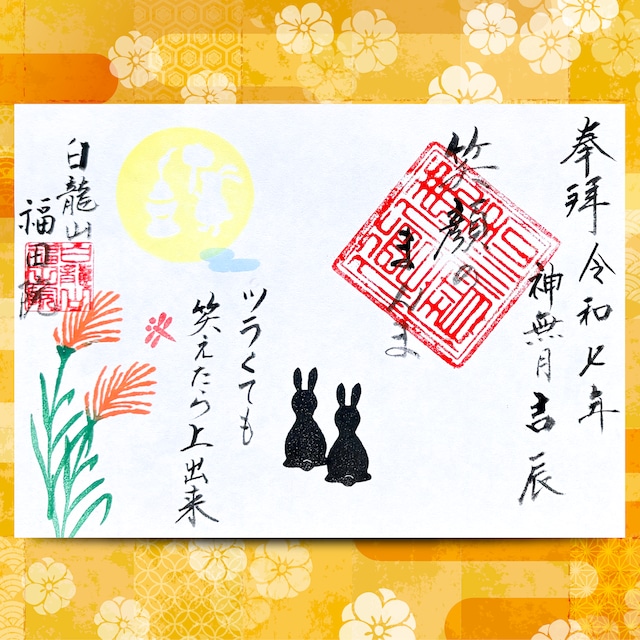 奉拝 令和七年
神無月吉辰
笑顔の
まんま
ツラくても
笑えたら上出来
白龍山
福田院